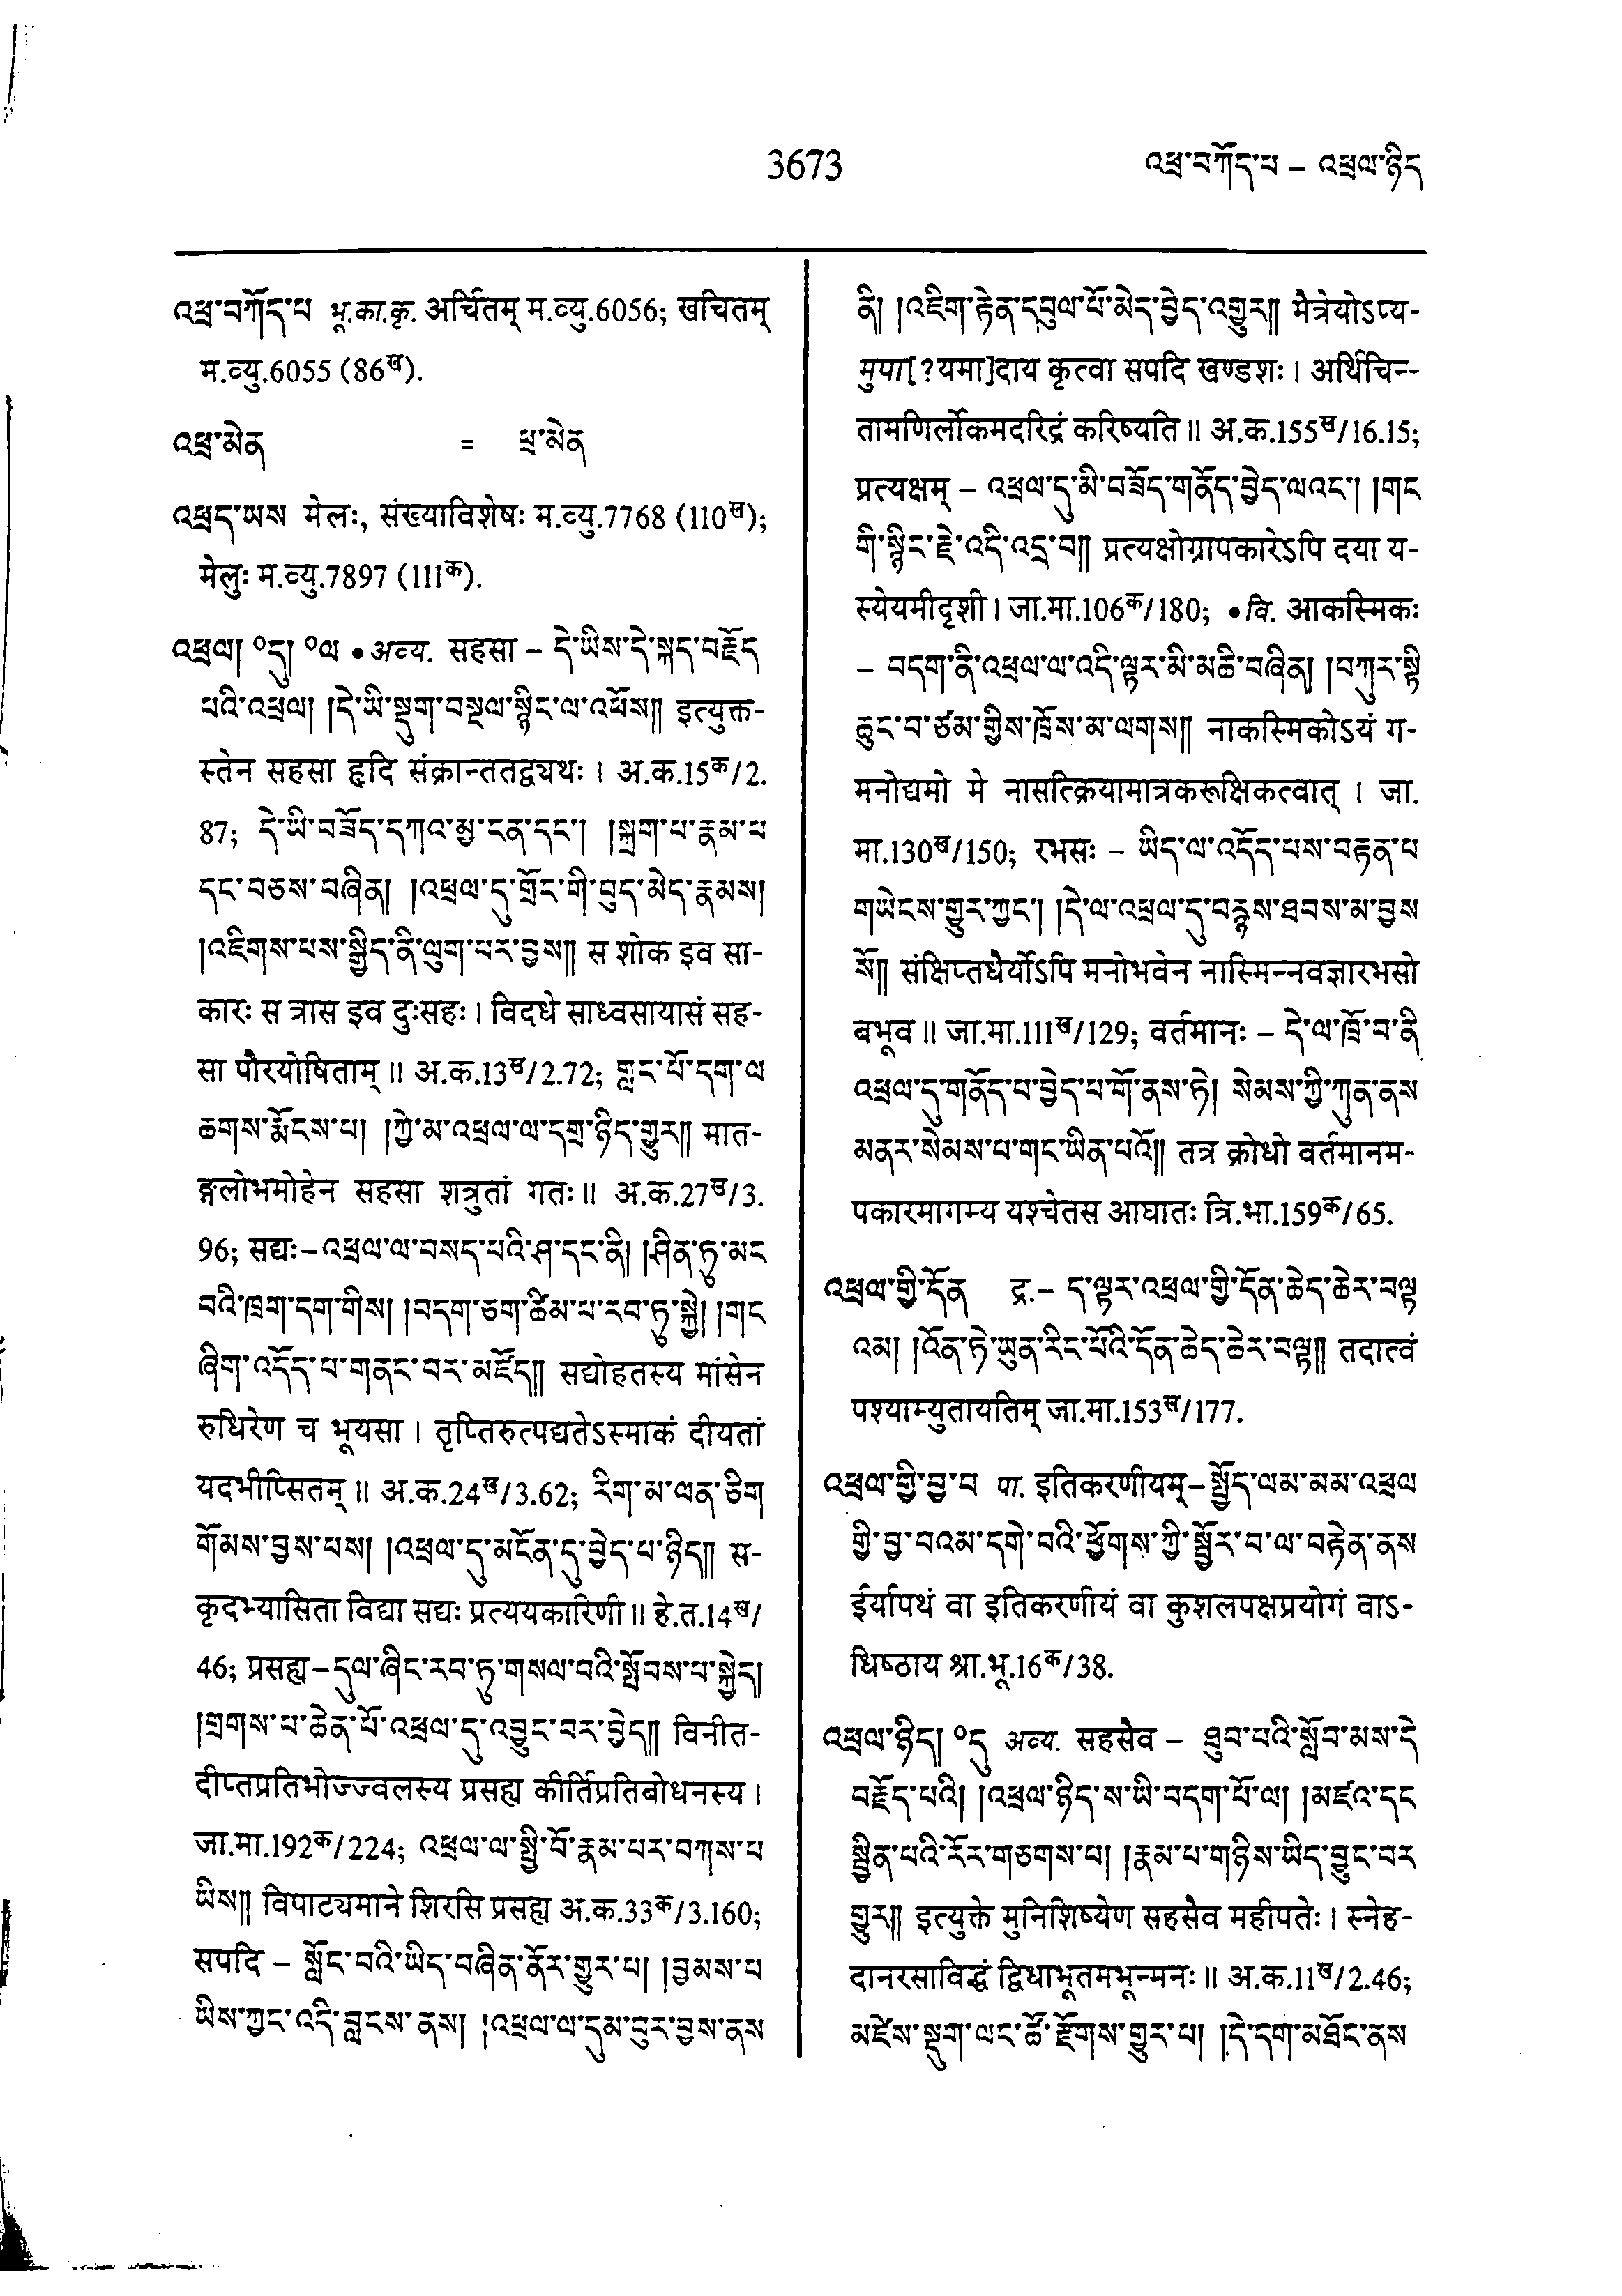 3673
འཕྲ་བཀོད་པ – འཕྲལ་ཉིད
འཕྲ་བཀོད་པ भू.का.कृ. अर्चितम् म.व्यु.6056; खचितम्
म.व्यु.6055 (86ख).
འཕྲ་མེན = ཕྲ་མེན
འཕྲད་ཡས मेलः, संख्याविशेषः म.व्यु.7768 (110ख);
मेलुः म.व्यु.7897 (111क).
འཕྲལ། ༠དུ། ༠ལ • अव्य. सहसा – དེ་ཡིས་དེ་སྐད་བརྗོད
པའི་འཕྲལ། །དེ་ཡི་སྡུག་བསྔལ་སྙིང་ལ་འཕོས།། इत्युक्त-
स्तेन सहसा हृदि संक्रान्ततद्व्यथः । अ.क.15क/2.
87; དེ་ཡི་བཟོད་དཀའ་མྱ་ངན་དང་། །སྐྲག་པ་རྣམ་པ
དང་བཅས་བཞིན། །འཕྲལ་དུ་གྲོང་གི་བུད་མེད་རྣམས།
།འཇིགས་པས་སྒྱིད་ནི་ལུག་པར་བྱས།། स शोक इव सा-
कारः स त्रास इव दुःसहः । विदधे साध्वसायासं सह-
सा पौरयोषिताम् ॥ अ.क.13ख/2.72; གླང་པོ་དག་ལ
ཆགས་རྨོངས་པ། །ཀྱེ་མ་འཕྲལ་ལ་དགྲ་ཉིད་གྱུར།། मात-
ङ्गलोभमोहेन सहसा शत्रुतां गतः ॥ अ.क.27ख/3.
96; सद्यः – འཕྲལ་ལ་བསད་པའི་ཤ་དང་ནི། །ཤིན་ཏུ་མང
བའི་ཁྲག་དག་གིས། །བདག་ཅག་ཚིམ་པ་རབ་ཏུ་སྐྱེ། །གང
ཞིག་འདོད་པ་གནང་བར་མཛོད།། सद्योहतस्य मांसेन
रुधिरेण च भूयसा । तृप्तिरुत्पद्यतेऽस्माकं दीयतां
यदभीप्सितम् ॥ अ.क.24ख/3.62; རིག་མ་ལན་ཅིག
གོམས་བྱས་པས། །འཕྲལ་དུ་མངོན་དུ་བྱེད་པ་ཉིད།། स-
कृदभ्यासिता विद्या सद्यः प्रत्ययकारिणी ॥ हे.त.14ख/
46; प्रसह्य – དུལ་ཞིང་རབ་ཏུ་གསལ་བའི་སྤོབས་པ་སྐྱེད།
།གྲགས་པ་ཆེན་པོ་འཕྲལ་དུ་འབྱུང་བར་བྱེད།། विनीत-
दीप्तप्रतिभोज्ज्वलस्य प्रसह्य कीर्तिप्रतिबोधनस्य ।
जा.मा.192क/224; འཕྲལ་ལ་སྤྱི་བོ་རྣམ་པར་བཀས་པ
ཡིས།། विपाट्यमाने शिरसि प्रसह्य अ.क.33क/3.160;
सपदि – སློང་བའི་ཡིད་བཞིན་ནོར་གྱུར་པ། །བྱམས་པ
ཡིས་ཀྱང་འདི་བླངས་ནས། །འཕྲལ་ལ་དུམ་བུར་བྱས་ནས
ནི། །འཇིག་རྟེན་དབུལ་པོ་མེད་བྱེད་འགྱུར།། मैत्रेयोऽप्य-
मुपा[?यमा]दाय कृत्वा सपदि खण्डशः । अर्थिचिन्-
तामणिर्लोकमदरिद्रं करिष्यति ॥ अ.क.155ख/16.15;
प्रत्यक्षम् – འཕྲལ་དུ་མི་བཟོད་གནོད་བྱེད་ལའང་། །གང
གི་སྙིང་རྗེ་འདི་འདྲ་བ།། प्रत्यक्षोग्रापकारेऽपि दया य-
स्येयमीदृशी । जा.मा.106क/180; • वि. आकस्मिकः
– བདག་ནི་འཕྲལ་ལ་འདི་ལྟར་མི་མཆི་བཞིན། །བཀུར་སྟི
ཆུང་བ་ཙམ་གྱིས་ཁྲོས་མ་ལགས།། नाकस्मिकोऽयं ग-
मनोद्यमो मे नासत्क्रियामात्रकरूक्षिकत्वात् । जा.
मा.130ख/150; रभसः – ཡིད་ལ་འདོད་པས་བརྟན་པ
གཡེངས་གྱུར་ཀྱང་། །དེ་ལ་འཕྲལ་དུ་བརྙས་ཐབས་མ་བྱས
སོ།། संक्षिप्तधैर्योऽपि मनोभवेन नास्मिन्नवज्ञारभसो
बभूव ॥ जा.मा.111ख/129; वर्तमानः – དེ་ལ་ཁྲོ་བ་ནི
འཕྲལ་དུ་གནོད་པ་བྱེད་པ་གོ་ནས་ཏེ། སེམས་ཀྱི་ཀུན་ནས
མནར་སེམས་པ་གང་ཡིན་པའོ།། तत्र क्रोधो वर्तमानम-
पकारमागम्य यश्चेतस आघातः त्रि.भा.159क/65.
འཕྲལ་གྱི་དོན द्र.– ད་ལྟར་འཕྲལ་གྱི་དོན་ཆེད་ཆེར་བལྟ
འམ། །འོན་ཏེ་ཡུན་རིང་པོའི་དོན་ཆེད་ཆེར་བལྟ།། तदात्वं
पश्याम्युतायतिम् जा.मा.153ख/177.
འཕྲལ་གྱི་བྱ་བ पा. इतिकरणीयम् – སྤྱོད་ལམ་མམ་འཕྲལ
གྱི་བྱ་བའམ་དགེ་བའི་ཕྱོགས་ཀྱི་སྦྱོར་བ་ལ་བརྟེན་ནས
ईर्यापथं वा इतिकरणीयं वा कुशलपक्षप्रयोगं वाऽ-
धिष्ठाय श्रा.भू.16क/38.
འཕྲལ་ཉིད། ༠དུ अव्य. सहसैव – ཐུབ་པའི་སློབ་མས་དེ
བརྗོད་པའི། །འཕྲལ་ཉིད་ས་ཡི་བདག་པོ་ལ། །མཛའ་དང
སྦྱིན་པའི་རོར་གཅགས་པ། །རྣམ་པ་གཉིས་ཡིད་བྱུང་བར
གྱུར།། इत्युक्ते मुनिशिष्येण सहसैव महीपतेः । स्नेह-
दानरसाविद्धं द्विधाभूतमभून्मनः ॥ अ.क.11ख/2.46;
མཛེས་སྡུག་ལང་ཚོ་རྫོགས་གྱུར་པ། །དེ་དག་མཐོང་ནས